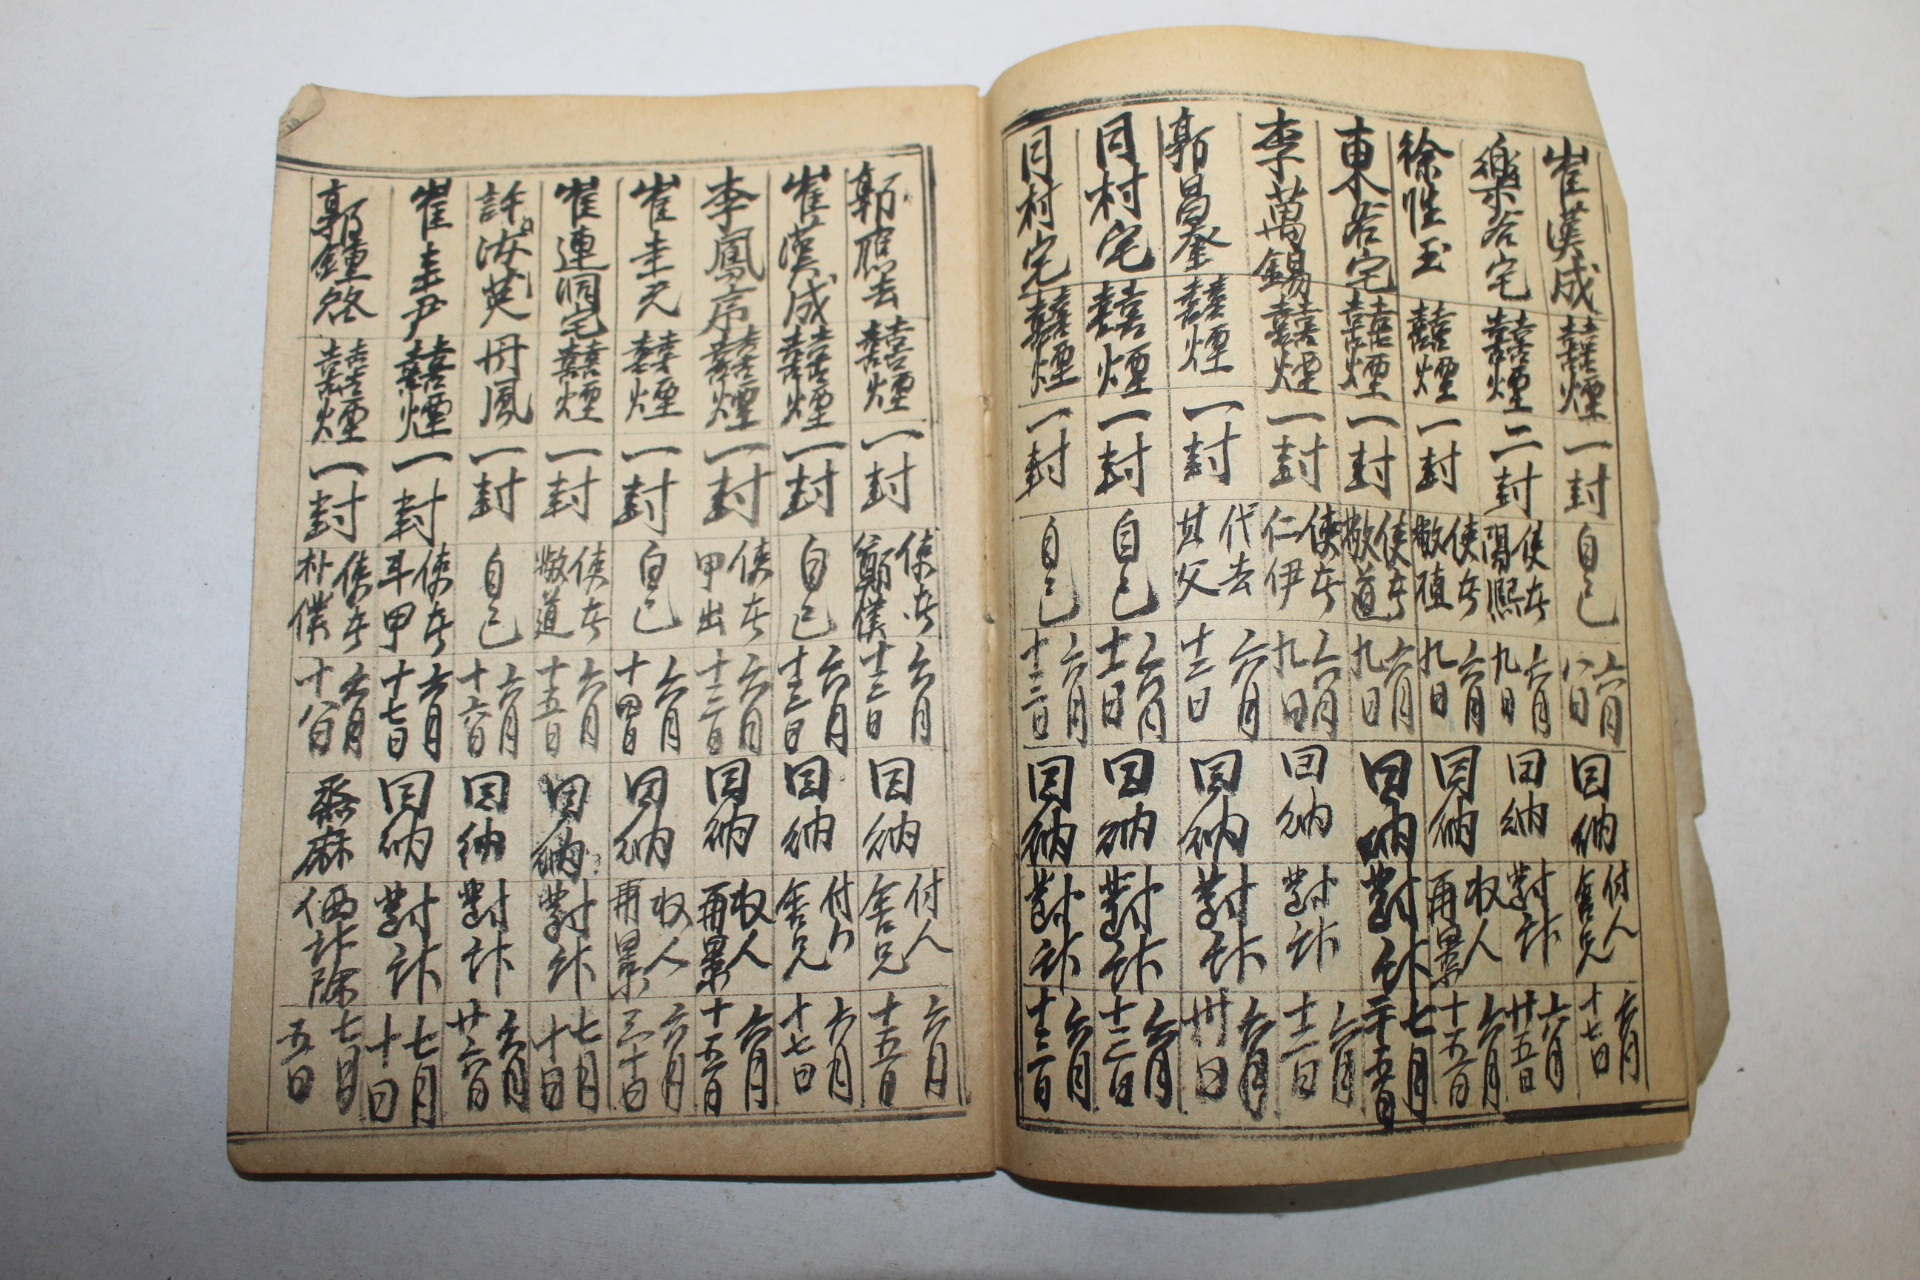 崔漢成 囍煙 一封 自己 六月八日 囙納 付人舍兄 六月十七日
樂谷宅 囍煙 二封 使在陽熙 六月九日 囙納 對計 六月廿五日
徐性玉 囍煙 一封 使在敞植 六月九日 囙納 收人再累 六月十五日
東谷宅 囍煙 一封 使在敞道 六月九日 囙納 對計 七月二十五日
李萬錫 囍煙 一封 使在仁伊 六月九日 囙納 對計 六月十二日
郭昌奎 囍煙 一封 代去其父 六月十二日 囙納 對計 六月卅日
囙村宅 囍煙 一封 自己 六月十二日 囙納 對計 六月十二日
囙村宅 囍煙 一封 自己 六月十二日 囙納 對計 六月十二日
郭應去 囍煙 一封 使在鄭僕 六月十三日 囙納 付人舍兄 六月十五日
崔漢成 囍煙 一封 自己 六月十三日 囙納 付人舍兄 六月十七日
李鳳序 囍煙 一封 使在甲出 六月十三日 囙納 收人再累 六月十五日
崔圭元 囍煙 一封 自己 六月十四日 囙納 收人再累 六月三十日
崔連洞宅 囍煙 一封 使在敞道 六月十五日 囙納 對計 七月十日
許汝英 丹鳳 一封 自己 六月十六日 囙納 對計 六月廿六日
崔圭尹 囍煙 一封 使在斗甲 六月十七日 囙納 對計 七月十日
郭鐘啓 囍煙 一封 使在朴僕 六月十八日 麻 価計除 七月五日